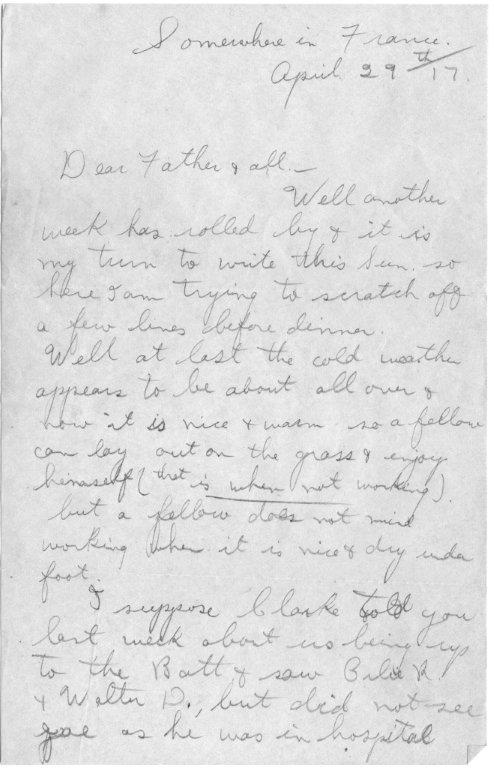 Somewhere in France.
April 29th/17.
Dear Father & all.—
Well another
week has rolled by & it is
my turn to write this Sun. so
here I am trying to scratch off
a few lines before dinner.
Well at last the cold weather
appears to be about all over &
now it is nice & warm so a fellow
can lay out on the grass & enjoy
himself (that is when not working).
but a fellow does not mind
working when it is nice & dry under
foot.
I suppose Clarke told you
last week about us being up
to the Batt. & saw R.
& Walter D., but did not see
as he was in hospital